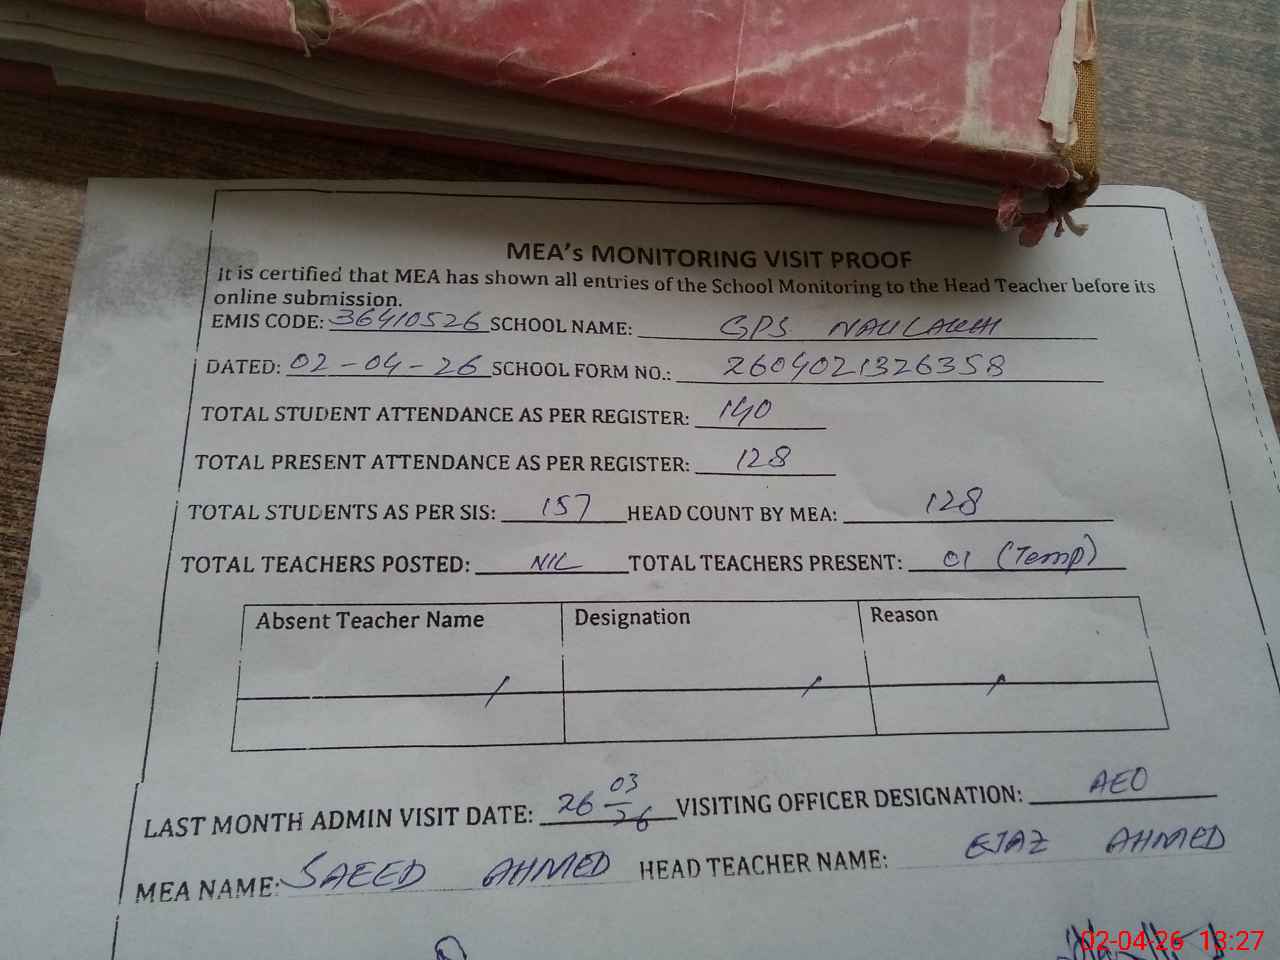 MEA's MONITORING VISIT PROOF
It is certified that MEA has shown all entries of the School Monitoring to the Head Teacher before its
online submission.
EMIS CODE: 36410526 SCHOOL NAME: GPS NAULAKHI
DATED: 02-04-26 SCHOOL FORM NO.: 2604021326358
TOTAL STUDENT ATTENDANCE AS PER REGISTER: 140
TOTAL PRESENT ATTENDANCE AS PER REGISTER: 128
TOTAL STUDENTS AS PER SIS: 157 HEAD COUNT BY MEA: 128
TOTAL TEACHERS POSTED: NIL TOTAL TEACHERS PRESENT: 01 (Temp)
Absent Teacher Name Designation Reason
LAST MONTH ADMIN VISIT DATE: 26 03/26 VISITING OFFICER DESIGNATION: AEO
MEA NAME: SAEED AHMED HEAD TEACHER NAME: EJAZ AHMED
02-04-26 13:27